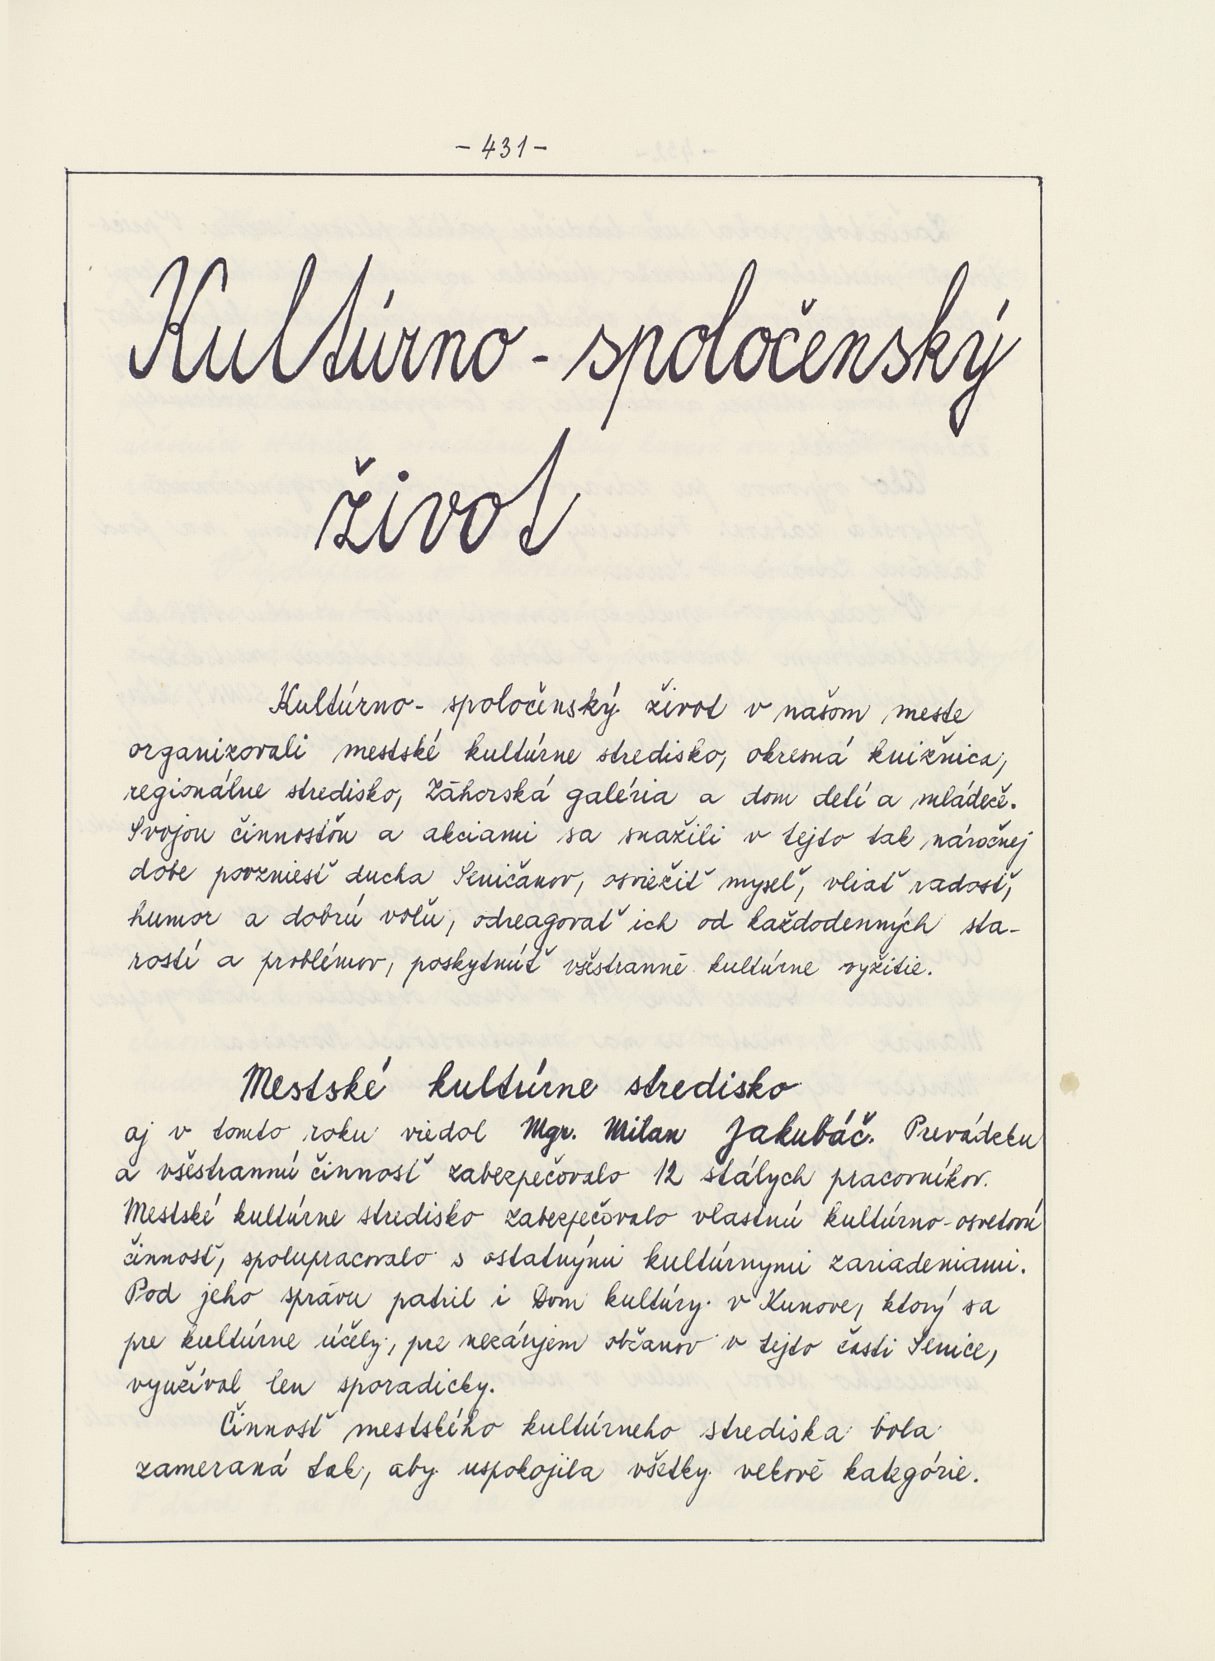 - 431 -
Kultúrno - spoločenský
život
Kultúrno - spoločenský život v našom meste
organizovali mestské kultúrne stredisko, okresná knižnica,
regionálne stredisko, Záhorská galéria a dom detí a mládeže.
Svojou činnosťou a akciami sa snažili v tejto tak náročnej
dobe povzniesť ducha Seničanov, osviežiť myseľ, vliať radosť,
humor a dobrú vôľu, odreagovať ich od každodenných sta-
rostí a problémov, poskytnúť všestranné kultúrne vyžitie.
Mestské kultúrne stredisko
aj v tomto roku viedol Mgr. Milan Jakubáč. Prevádzku
a všestrannú činnosť zabezpečovalo 12 stálych pracovníkov.
Mestské kultúrne stredisko zabezpečovalo vlastnú kultúrno-osvetovú
činnosť, spolupracovalo s ostatnými kultúrnymi zariadeniami.
Pod jeho správu patril i Dom kultúry v Kunove, ktorý sa
pre kultúrne účely, pre nezáujem občanov v tejto časti Senice,
využíval len sporadicky.
Činnosť mestského kultúrneho strediska bola
zameraná tak, aby uspokojila všetky vekové kategórie.